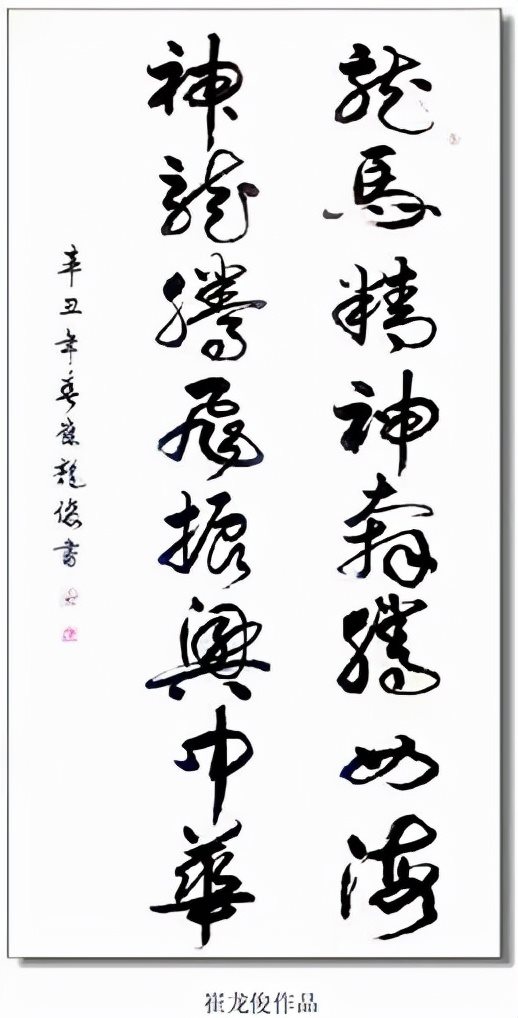 龍馬精神奔騰如海
神龍騰飛振興中華
辛丑年春崔龍俊書
崔龙俊作品